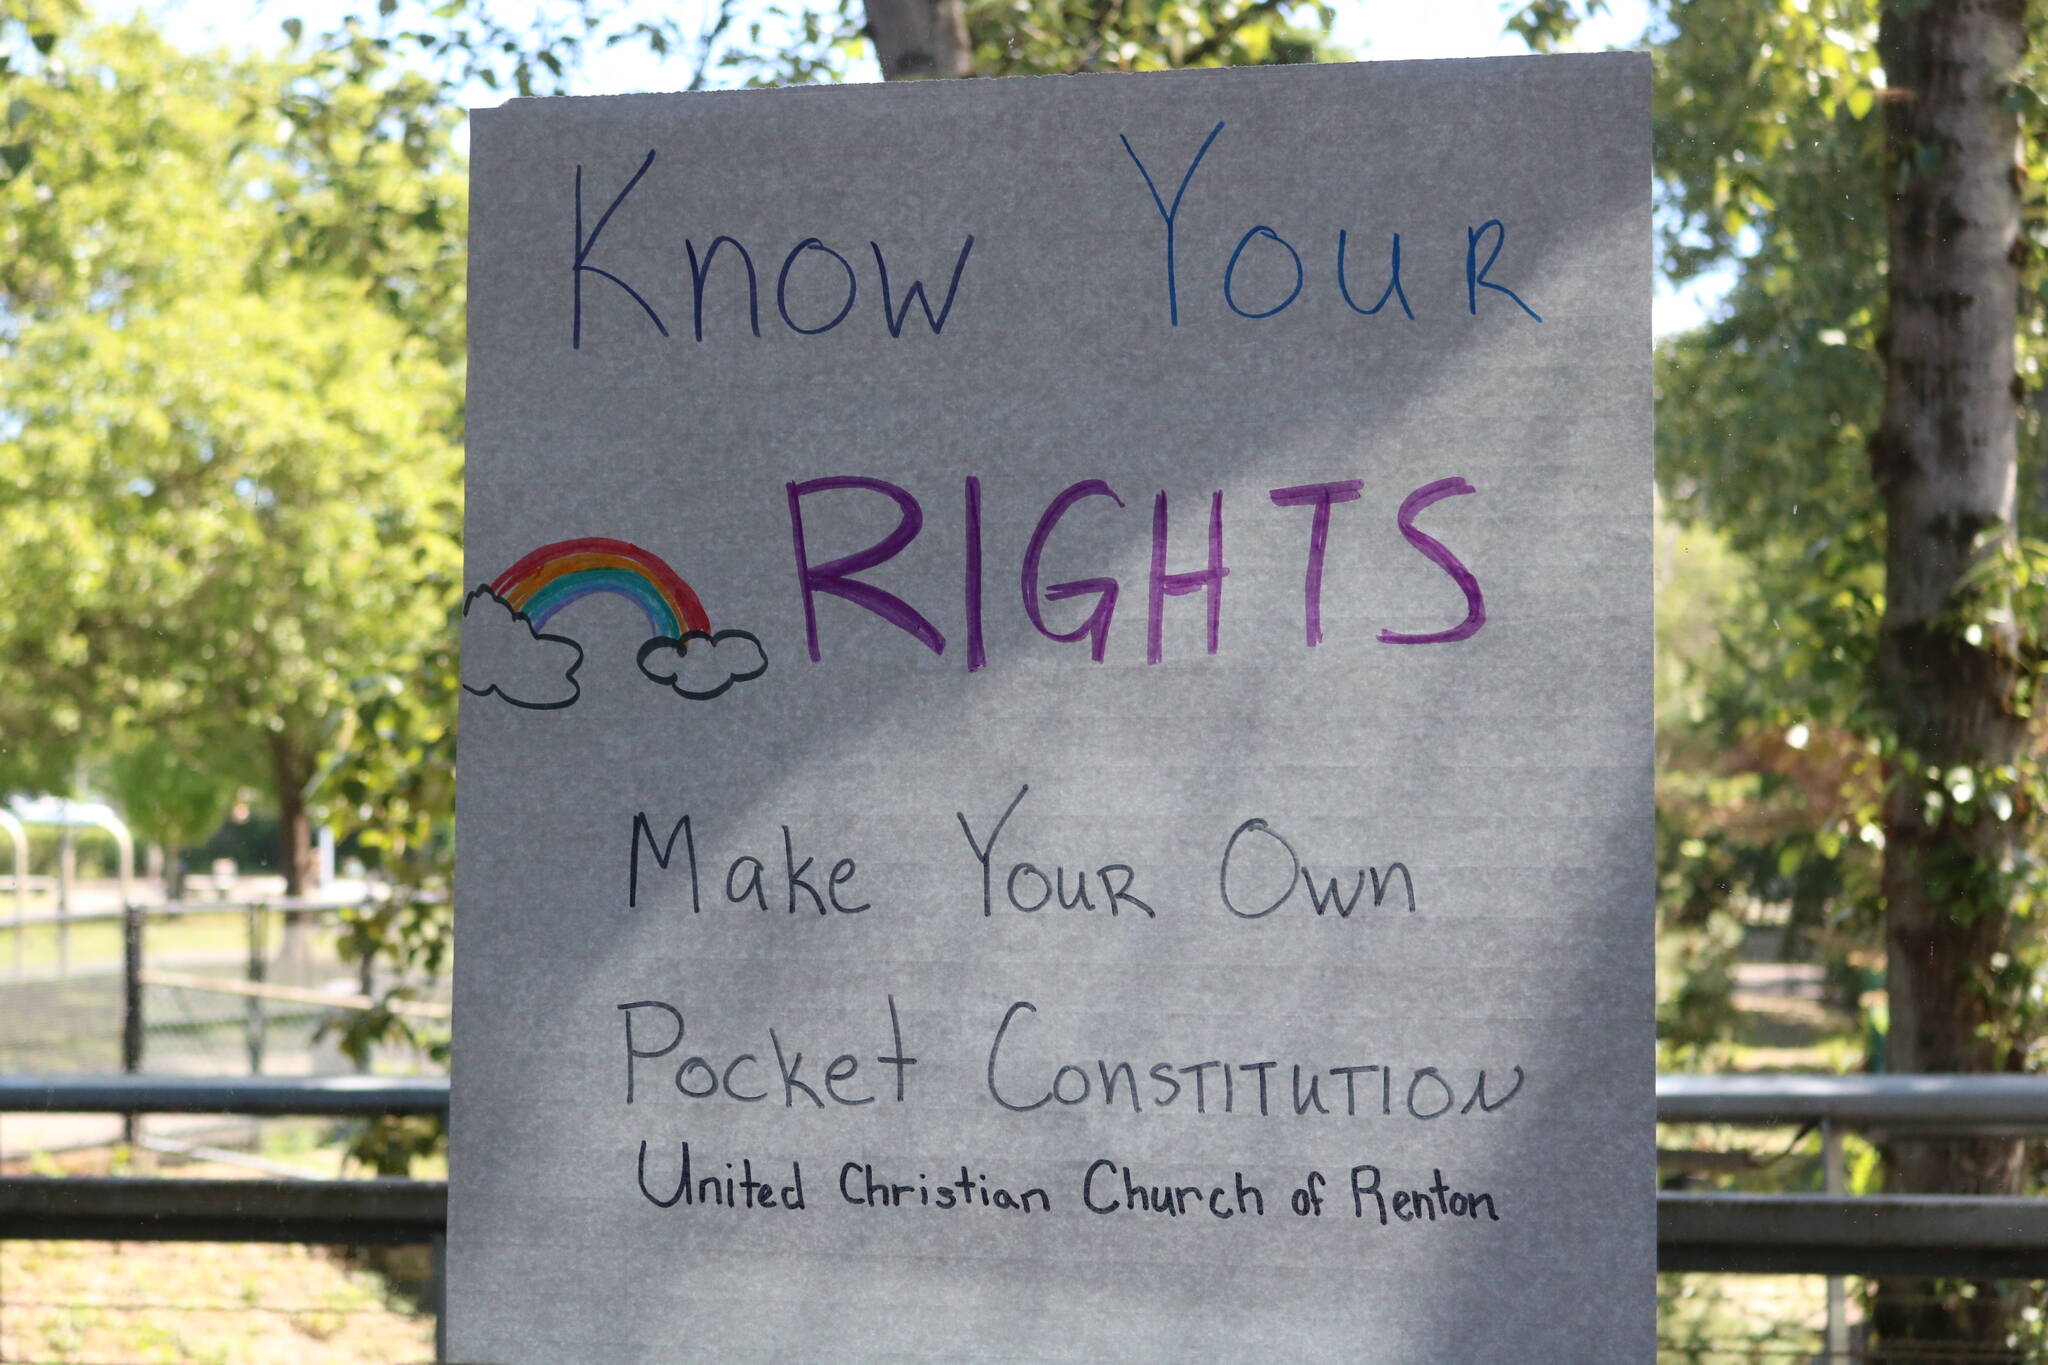 Know Your
RIGHTS
Make Your Own
Pocket Constitution
United Christian Church of Renton